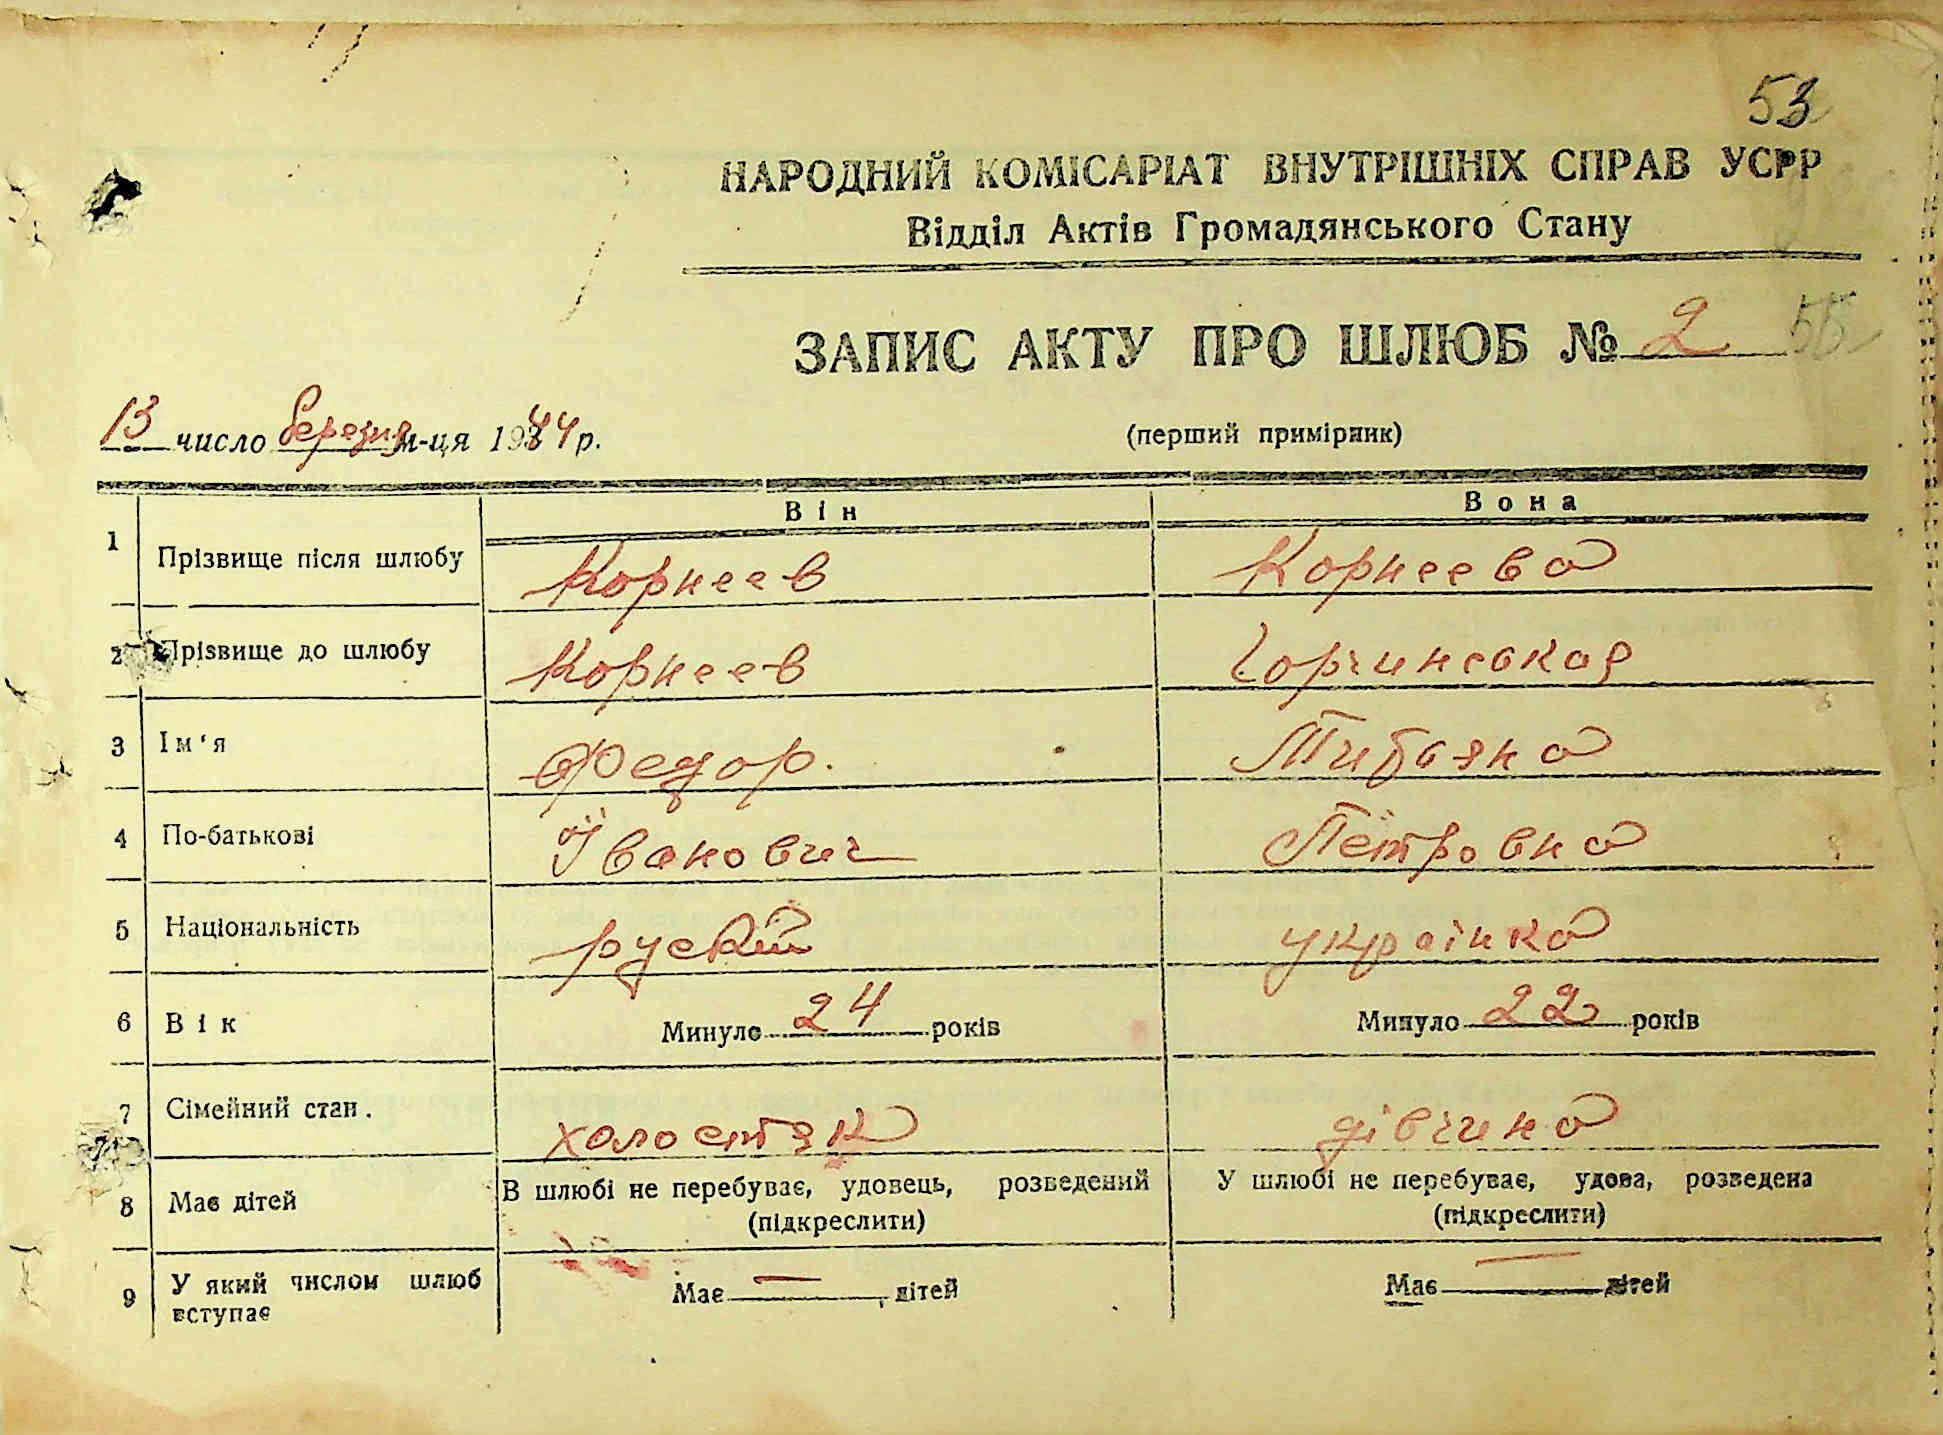 53
НАРОДНИЙ КОМІСАРІАТ ВНУТРІШНІХ СПРАВ УСРР
Відділ Актів Громадянського Стану
ЗАПИС АКТУ ПРО ШЛЮБ № 2 55
13 число березня м-ця 1944 р.
(перший примірник)
Він Вона
1 Прізвище після шлюбу Корнеев Корнеева
2 Прізвище до шлюбу Корнеев
3 Ім'я Федор.
4 По-батькові Їванович Петровна
5 Національність руский українка
6 Вік Минуло 24 років Минуло 22 років
7 Сімейний стан. холостяк дівчина
8 Має дітей В шлюбі не перебуває, удовець, розведений У шлюбі не перебуває, удова, розведена
(підкреслити) (підкреслити)
9 У який числом шлюб вступає Має — дітей Має — дітей